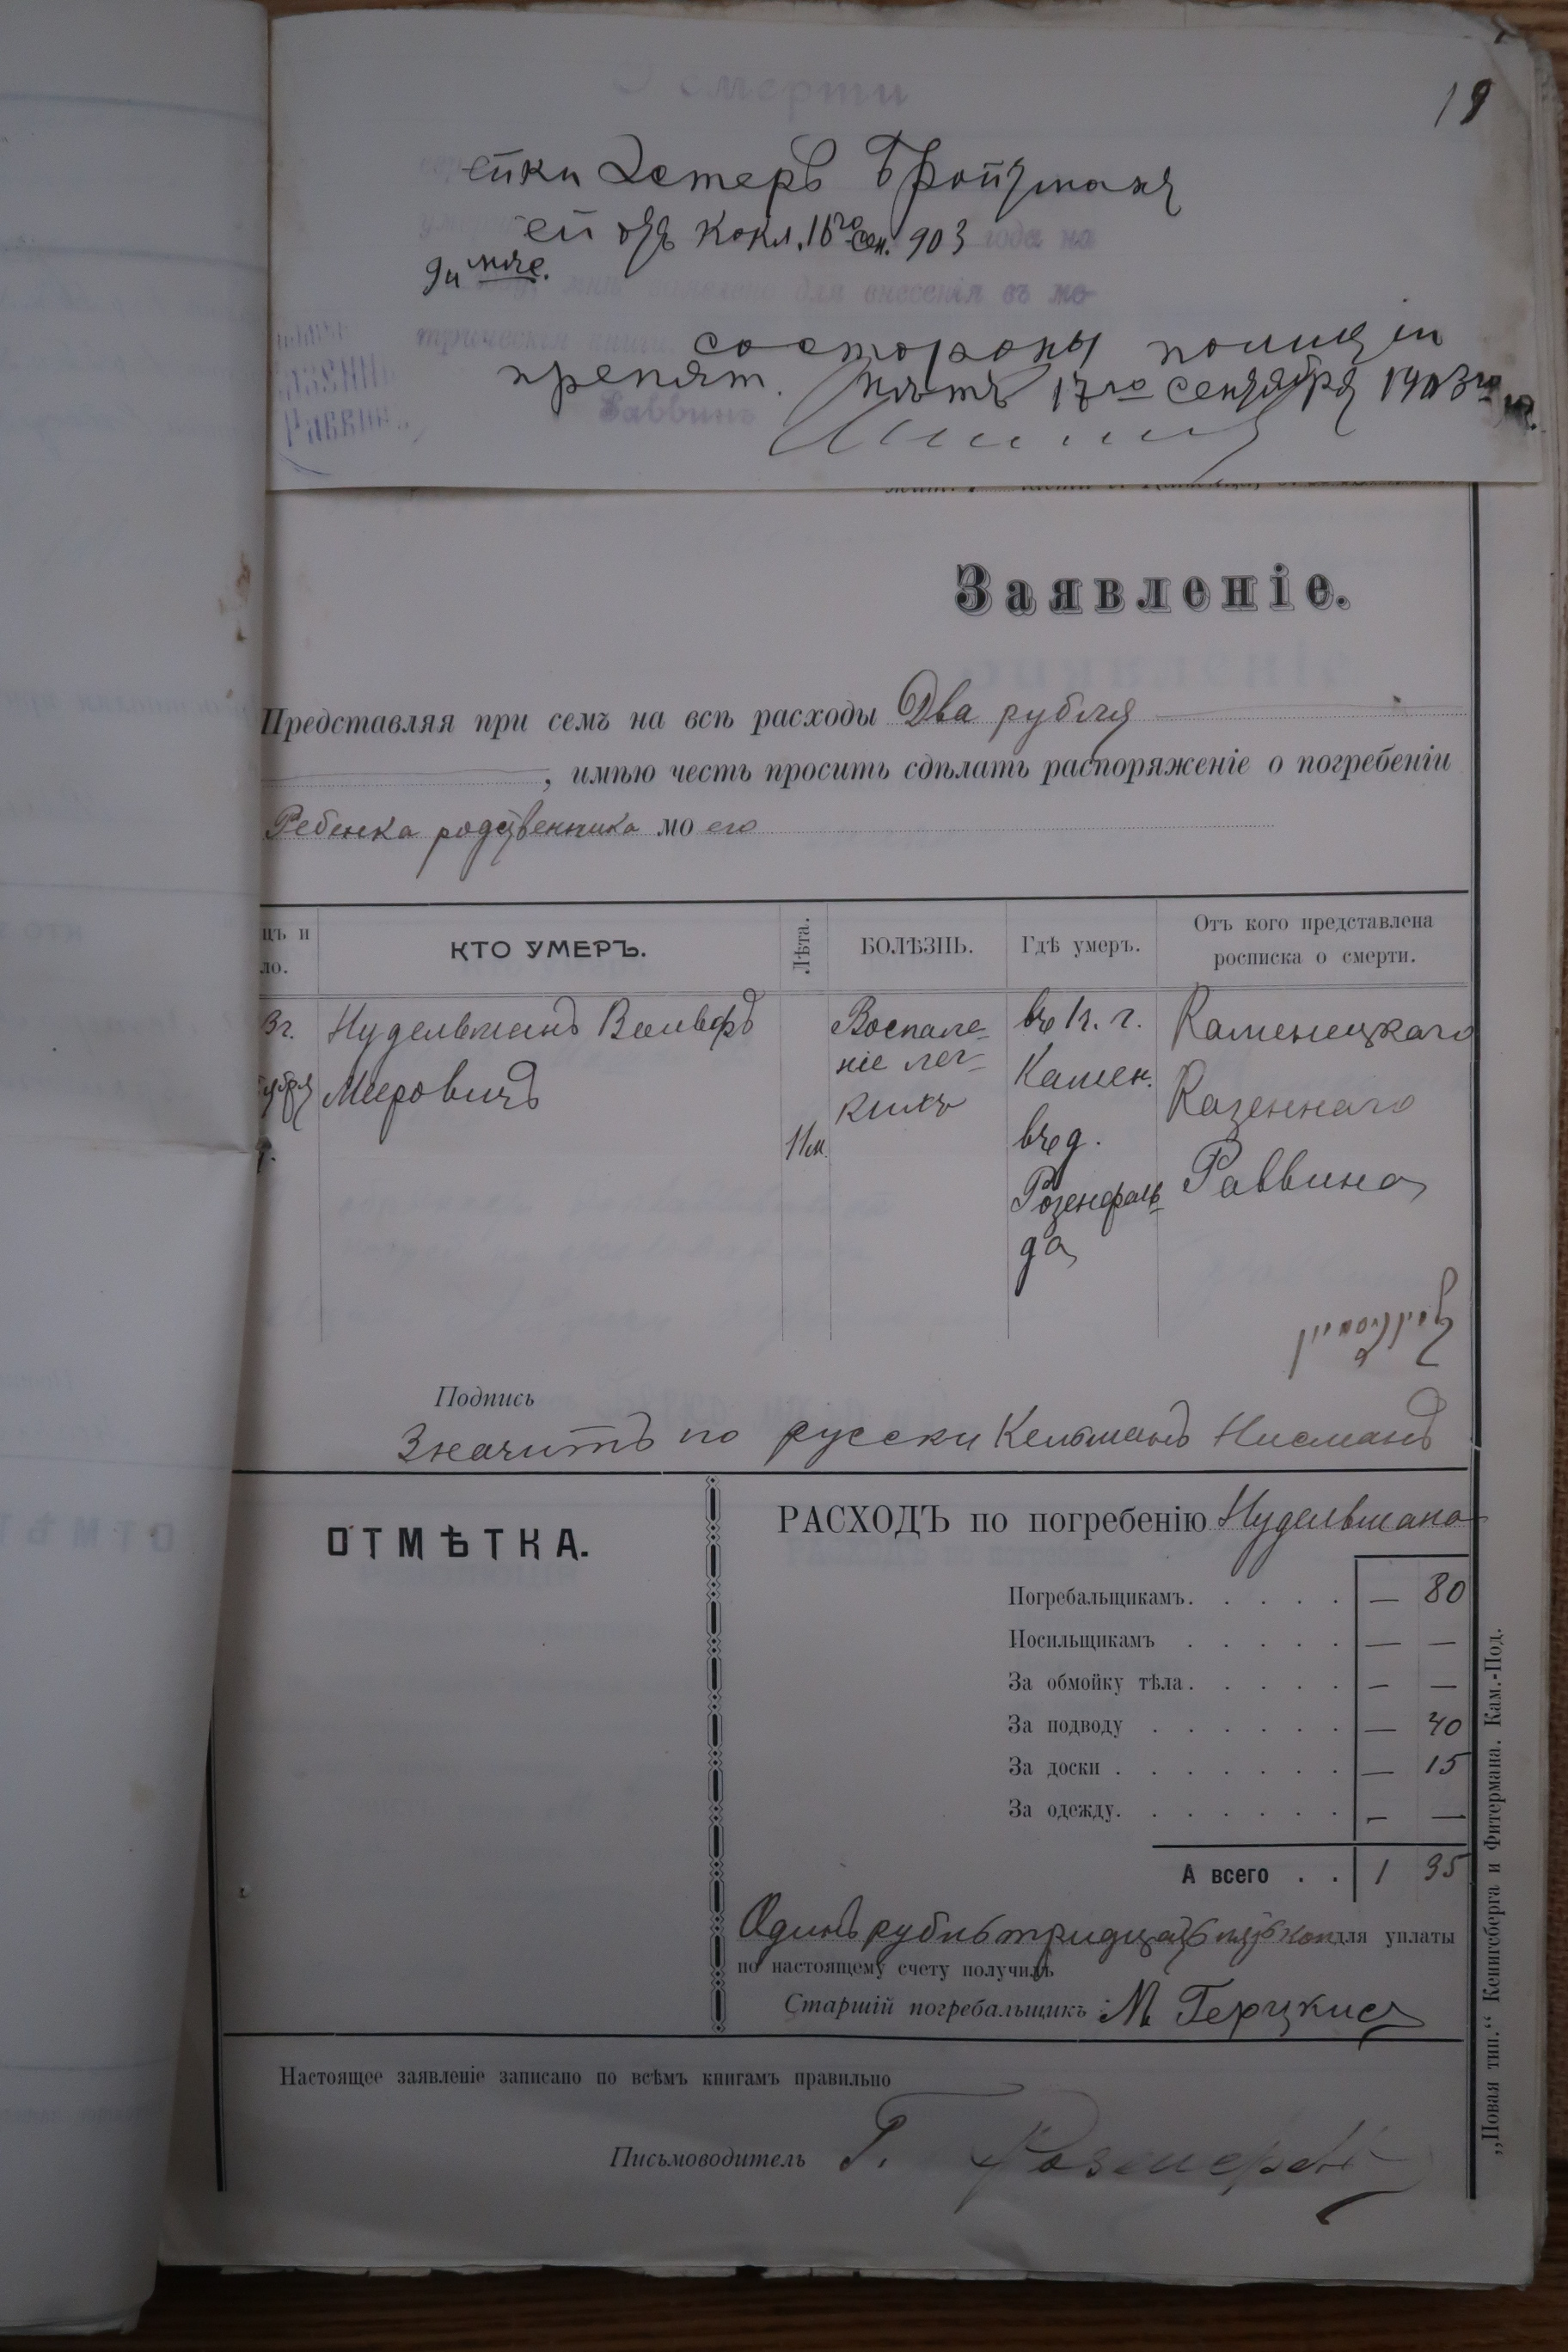 19
О смерти
ейки Эстеръ Бройтманъ
ей отъ кокл. 16го сен. 903 года на
9 и мѣс.
для внесенія въ ме-
трическія книги
со стороны полиціи
препят. нѣтъ 17го Сентября 1903го г.
Раввинъ
Заявленіе.
Представляя при семъ на всѣ расходы Два рубля
, имѣю честь просить сдѣлать распоряженіе о погребеніи
Ребенка родственника моего
цъ и
ло.
КТО УМЕРЪ.
Лѣта.
БОЛѢЗНЬ.
Гдѣ умеръ.
Отъ кого представлена
росписка о смерти.
3 г.
Нудельманъ Вольфъ
Мееровичъ
11 м.
Воспале-
ніе лег-
кихъ
въ гг. г.
Камен.
въ д.
Розенфель-
да
Каменецкаго
Казеннаго
Раввина
Подпись
Значитъ по русски Кельманъ Нисманъ
ОТМѢТКА.
РАСХОДЪ по погребенію Нудельмана
Погребальщикамъ. . . . . — 80
Носильщикамъ . . . . . — —
За обмойку тѣла. . . . . — —
За подводу . . . . . . — 40
За доски . . . . . . . — 15
За одежду. . . . . . . — —
А всего . . 1 35
Одинъ рубль тридцать пять коп для уплаты
по настоящему счету получилъ
Старшій погребальщикъ М Герцкисъ
Настоящее заявленіе записано по всѣмъ книгамъ правильно
Письмоводитель Г.
„Новая тип.“ Кенигсберга и Фитермана. Кам.-Под.